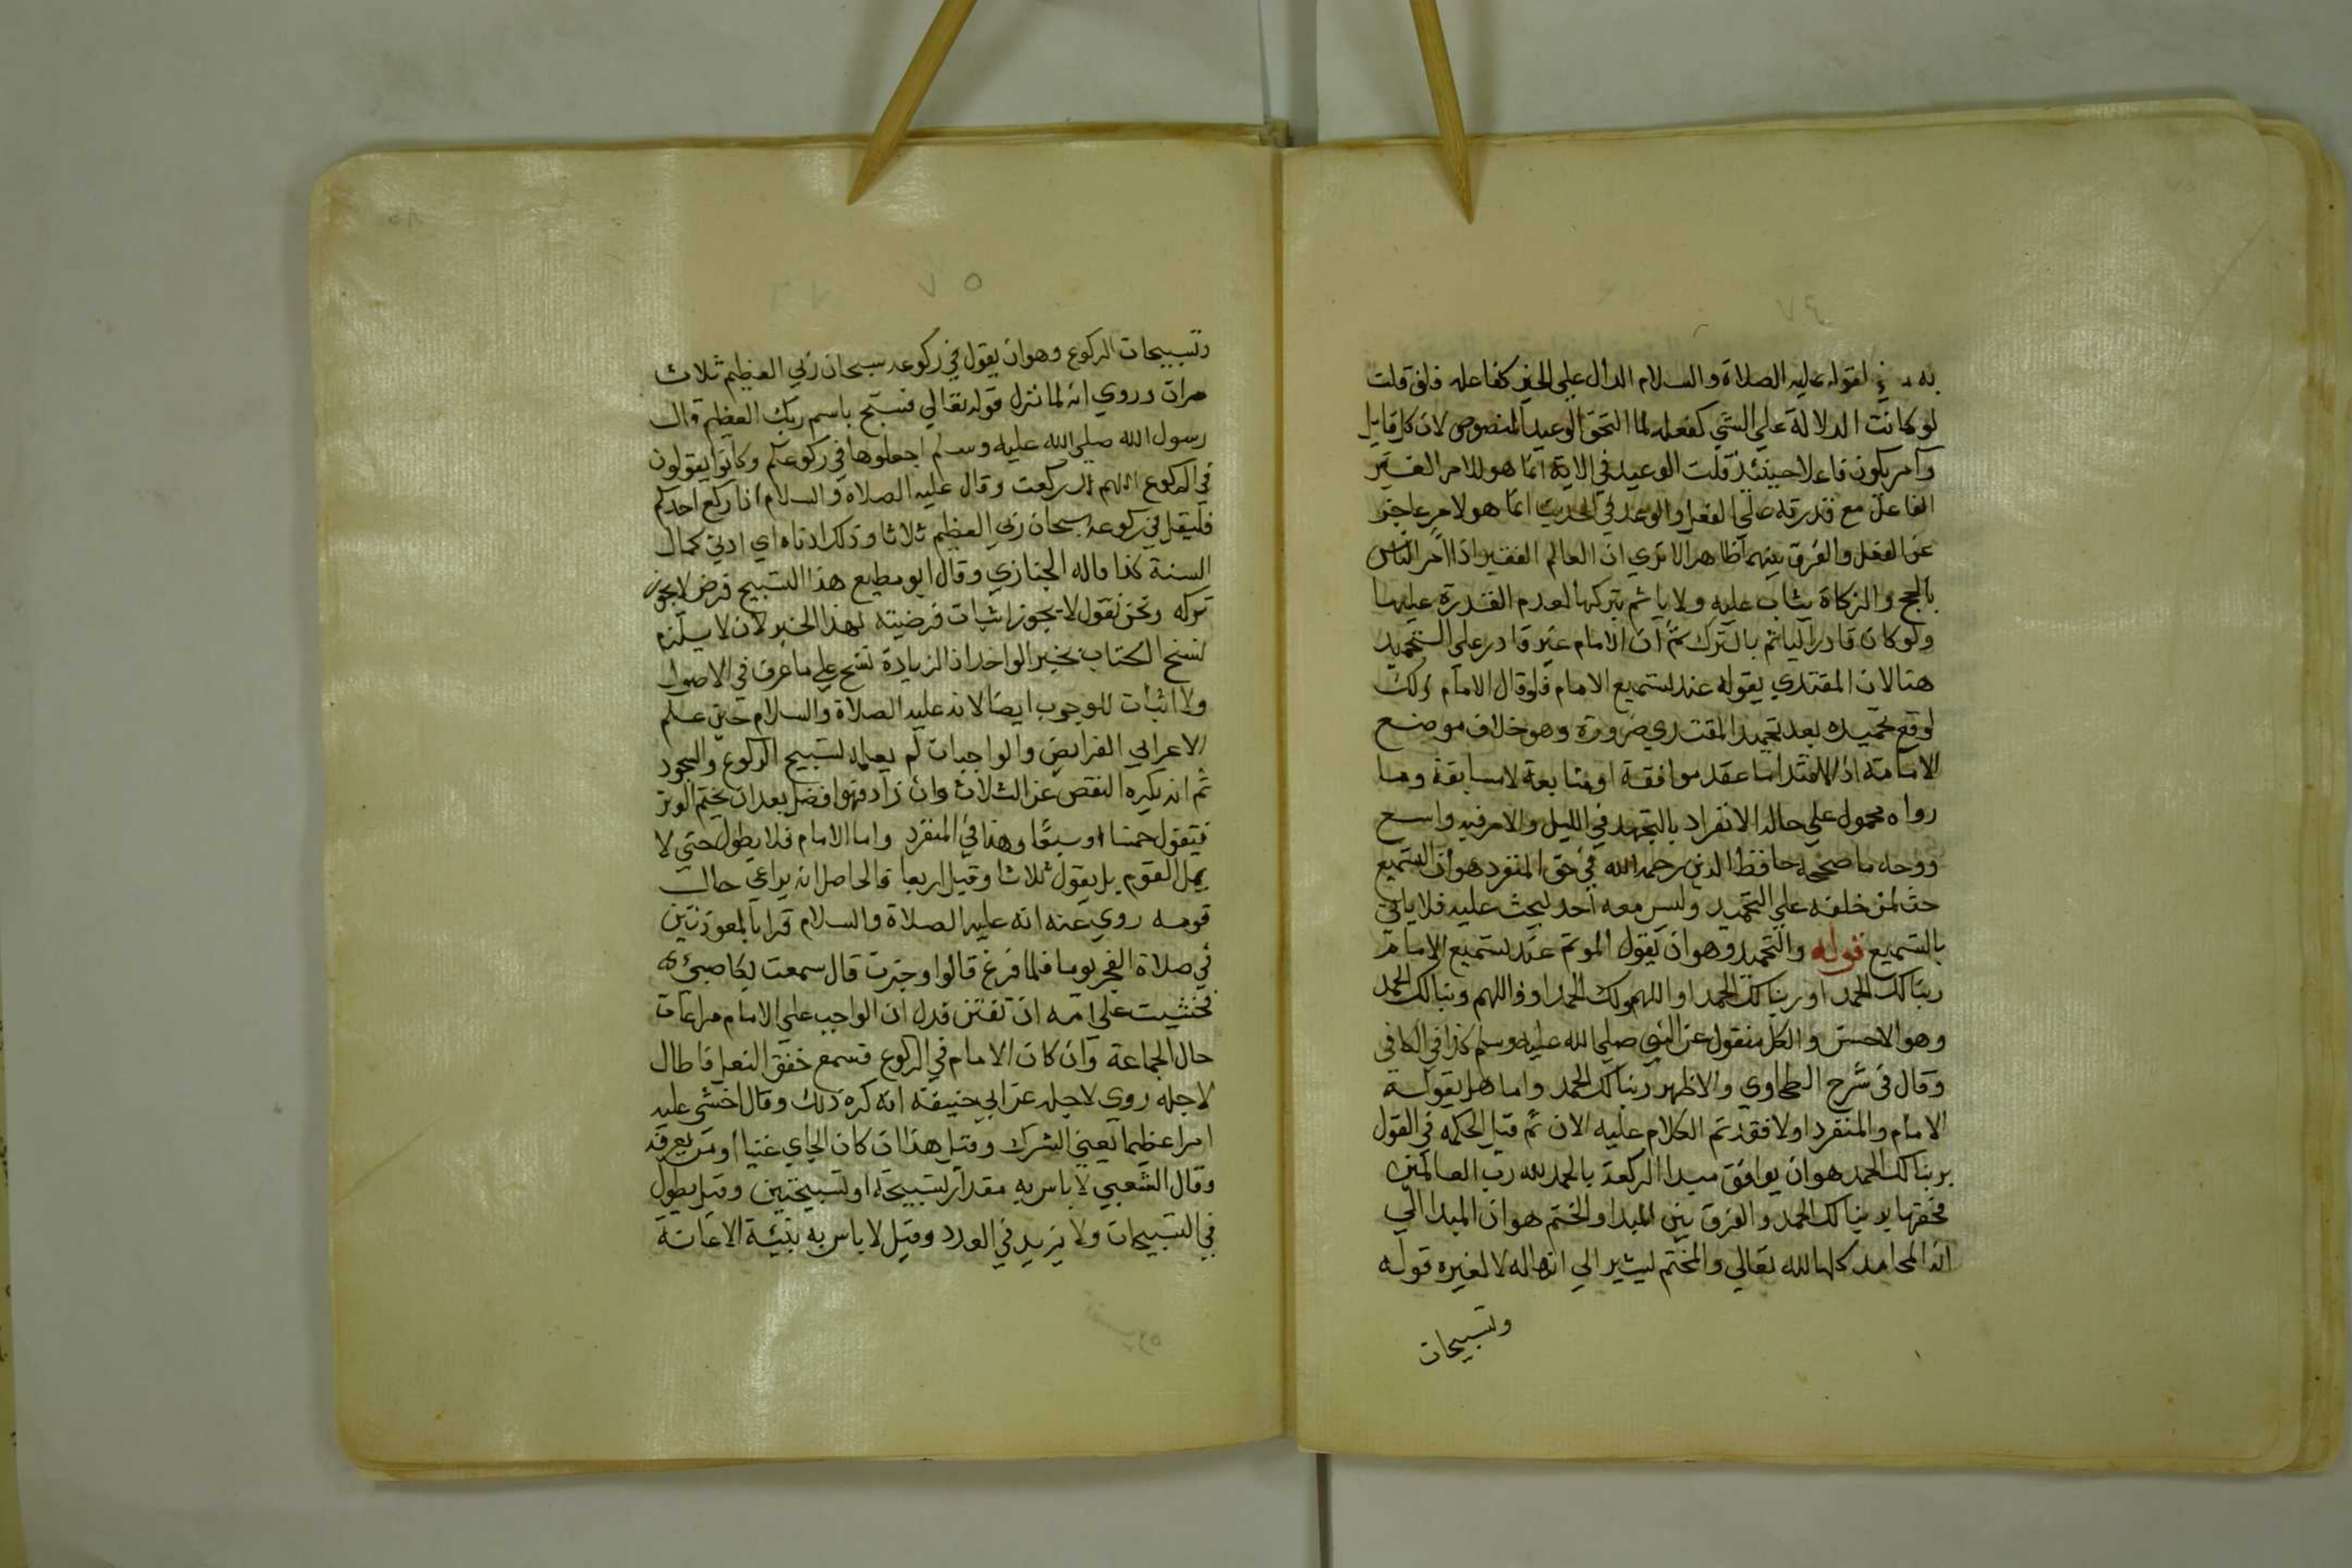 لقوله عليه الصلاة والسلام الدال علي الخير كفاعله فان قلت
لو كانت الدلالة علي الشي كفعله لما التحق الوعيد المنصوص لان كل قايل
وامر يكون فاعلا حينئذ قلت الوعيد في الاية انما هو للامر الغير
الفاعل مع قدرته علي الفعل والوعد في الحديث انما هو لامر عاجز
عن الفعل والفرق بينهما ظاهر الا تري ان العالم الفقير اذا امر الناس
بالحج والزكاة يثاب عليه ولا ياثم بتركها لعدم القدرة عليها
ولو كان قادرا لياثم بالترك ثم ان الامام غير قادر علي التحميد
هنا لان المقتدي يقوله عند تسميع الامام فلو قال الامام ذلك
لوقع تحميده بعد تحميد المقتدي ضرورة وهو خلاف موضع
الامامة اذ الاقتدا عقد موافقة او متابعة لا مسابقة وما
رواه محمول علي حالة الانفراد بالتهجد في الليل والامر فيه واسع
ووجه ما صححه حافظ الدين رحمه الله في حق المنفرد هو ان التسميع
حث لمن خلفه علي التحميد وليس معه احد ليحث عليه فلا ياتي
بالتسميع قوله والتحميد وهو ان يقول الموتم عند تسميع الامام
ربنا لك الحمد او ربنا لك الحمد او اللهم ولك الحمد او اللهم ربنا لك الحمد
وهو الاحسن والكل منقول عن النبي صلي الله عليه وسلم كذا في الكافي
وقال في شرح الطحاوي والاظهر ربنا لك الحمد واما هل يقوله
الامام والمنفرد اولا فقد تم الكلام عليه الان ثم قيل الحكمه في القول
بربنا لك الحمد هو ان يوافق مبدا الركعة بالحمد لله رب العالمين
فختمها بربنا لك الحمد والفرق بين المبدا والختم هو ان المبدا الي
ان المحامد كلها لله تعالي والمختم ليشير الي انها له لا لغيره قوله
وتسبيحات
٥٧
وتسبيحات الركوع وهو ان يقول في ركوعه سبحان ربي العظيم ثلاث
مرات وروي انه لما نزل قوله تعالي فسبح باسم ربك العظيم قال
رسول الله صلي الله عليه وسلم اجعلوها في ركوعكم وكانوا يقولون
في الركوع اللهم لك ركعت وقال عليه الصلاة والسلام اذا ركع احدكم
فليقل في ركوعه سبحان ربي العظيم ثلاثا وذلك ادناه اي ادني كمال
السنة كذا قاله الخبازي وقال ابو مطيع هذا التسبيح فرض لا يجوز
تركه ونحن نقول لا يجوز اثبات فرضيته بهذا الخبر لان لا يلزم
نسخ الكتاب بخبر الواحد اذ الزيادة نسخ علي ما عرف في الاصول
ولا اثبات للوجوب ايضا لانه عليه الصلاة والسلام حين علم
الاعرابي الفرايض والواجبات لم يعلمه تسبيح الركوع والسجود
ثم انه يكره النقص عن الثلاث وان زاد فهو افضل بعد ان يختم الوتر
فيقول خمسا او سبعا وهذا في المنفرد واما الامام فلا يطول حتي لا
يمل القوم بل يقول ثلاثا وقيل اربعا فالحاصل انه يراعي حال
قومه روي عنه انه عليه الصلاة والسلام قرا بالمعوذتين
في صلاة الفجر يوما فلما فرغ قالوا وجزت قال سمعت بكا صبي
فخشيت علي امه ان تفتتن فدل ان الواجب علي الامام مراعات
حال الجماعة وان كان الامام في الركوع فسمع خفق النعل فاطال
لاجله روي لاجله عن ابي حنيفة انه كره ذلك وقال اخشي عليه
امرا عظيما يعني الشرك وقيل هذا ان كان الجاي غنيا او من يعرفه
وقال الشعبي لا باس به مقدار تسبيحة او تسبيحتين وقيل يطول
في التسبيحات ولا يزيد في العدد وقيل لا باس به بنية الاعانة